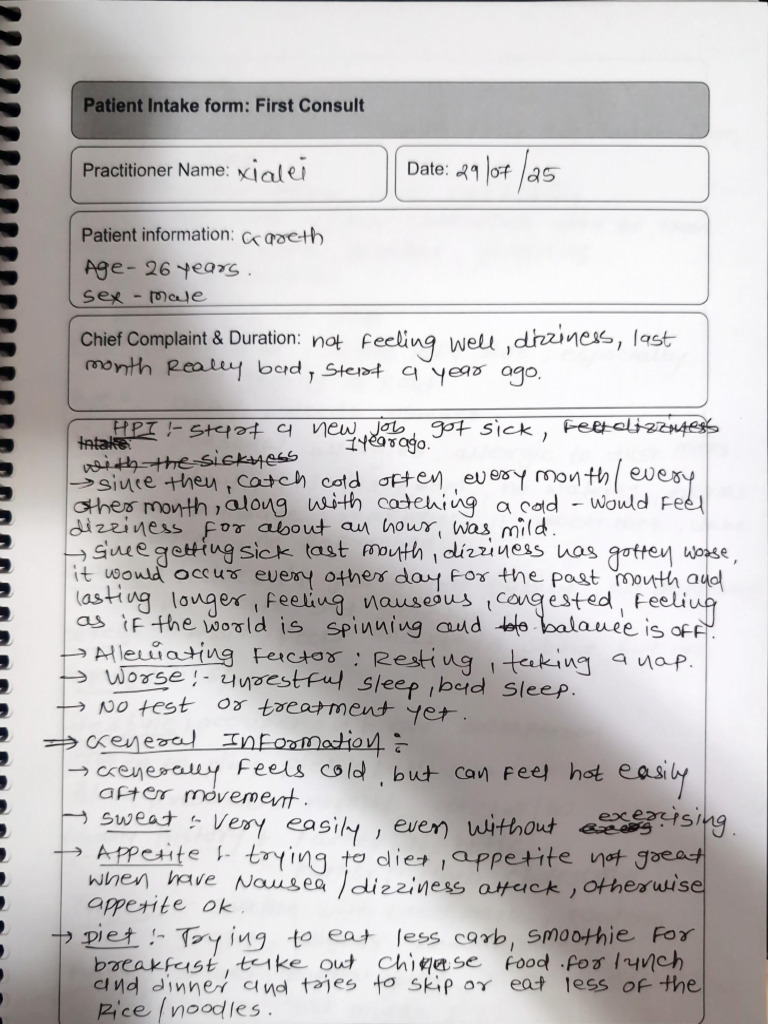 Patient Intake form: First Consult
Practitioner Name: xialei
Date: 29/07/25
Patient information: Gareth
Age- 26 years.
Sex - male
Chief Complaint & Duration: not feeling well, dizziness, last
month Really bad, start a year ago.
HPI :- start a new job, got sick, Felt dizziness
Intake: 1 year ago.
with the sickness
→ since then, catch cold often every month/every
other month, along with catching a cold - would feel
dizziness for about an hour, was mild.
→ Since getting sick last month, dizziness has gotten worse,
it would occur every other day for the past month and
lasting longer, feeling nauseous, congested, feeling
as if the world is spinning and balance is off.
→ Alleviating Factor : Resting, taking a nap.
→ Worse :- unrestful sleep, bad sleep.
→ No test or treatment yet.
⇒ General Information :-
→ Generally feels cold, but can feel hot easily
after movement.
→ Sweat :- Very easily, even without exercising.
→ Appetite :- trying to diet, appetite not great
when have Nausea / dizziness attack, otherwise
appetite ok.
→ Diet :- Trying to eat less carb, smoothie for
breakfast, take out Chinese food for lunch
and dinner and tries to skip or eat less of the
Rice/noodles.